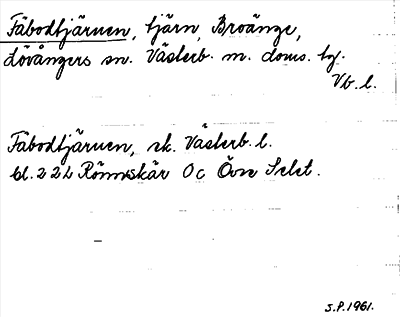 Fäbodtjärnen, tjärn, Broänge,
Lövångers sn. Västerb. m. doms. tg.
Vb. l.
Fäbodtjärnen, sk. Västerb. l.
bl. 22L Rönnskär Oc Övre Selet.
S.P. 1961.